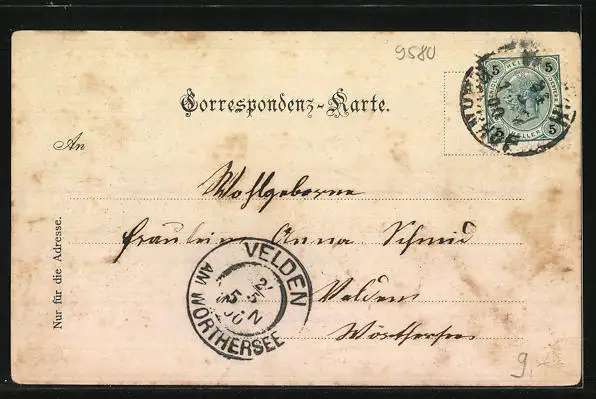 9580
5 HELLER 5
5 HELLER 5
Correspondenz-Karte.
An
Wohlgeborne
Fräulein Anna Schmid
Velden
Wörthersee
Nur für die Adresse.
VELDEN
5 5
AM WÖRTHERSEE
9.-